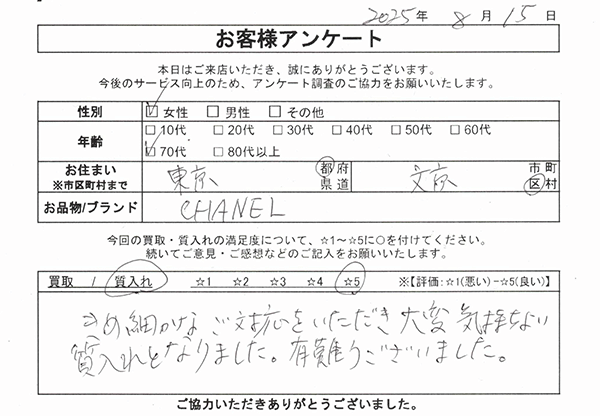 2025年 8月15日
お客様アンケート
本日はご来店いただき、誠にありがとうございます。
今後のサービス向上のため、アンケート調査のご協力をお願いいたします。
性別 ☑女性 □男性 □その他
年齢 □10代 □20代 □30代 □40代 □50代 □60代
☑70代 □80代以上
お住まい 東京 都府 文京 市町
※市区町村まで 県道 区村
お品物/ブランド CHANEL
今回の買取・質入れの満足度について、☆1～☆5に○を付けてください。
続いてご意見・ご感想などのご記入をお願いいたします。
買取 / 質入れ ☆1 ☆2 ☆3 ☆4 ☆5 ※【評価:☆1(悪い)−☆5(良い)】
きめ細かなご対応をいただき大変気持ちよい
質入れとなりました。有難うございました。
ご協力いただきありがとうございました。